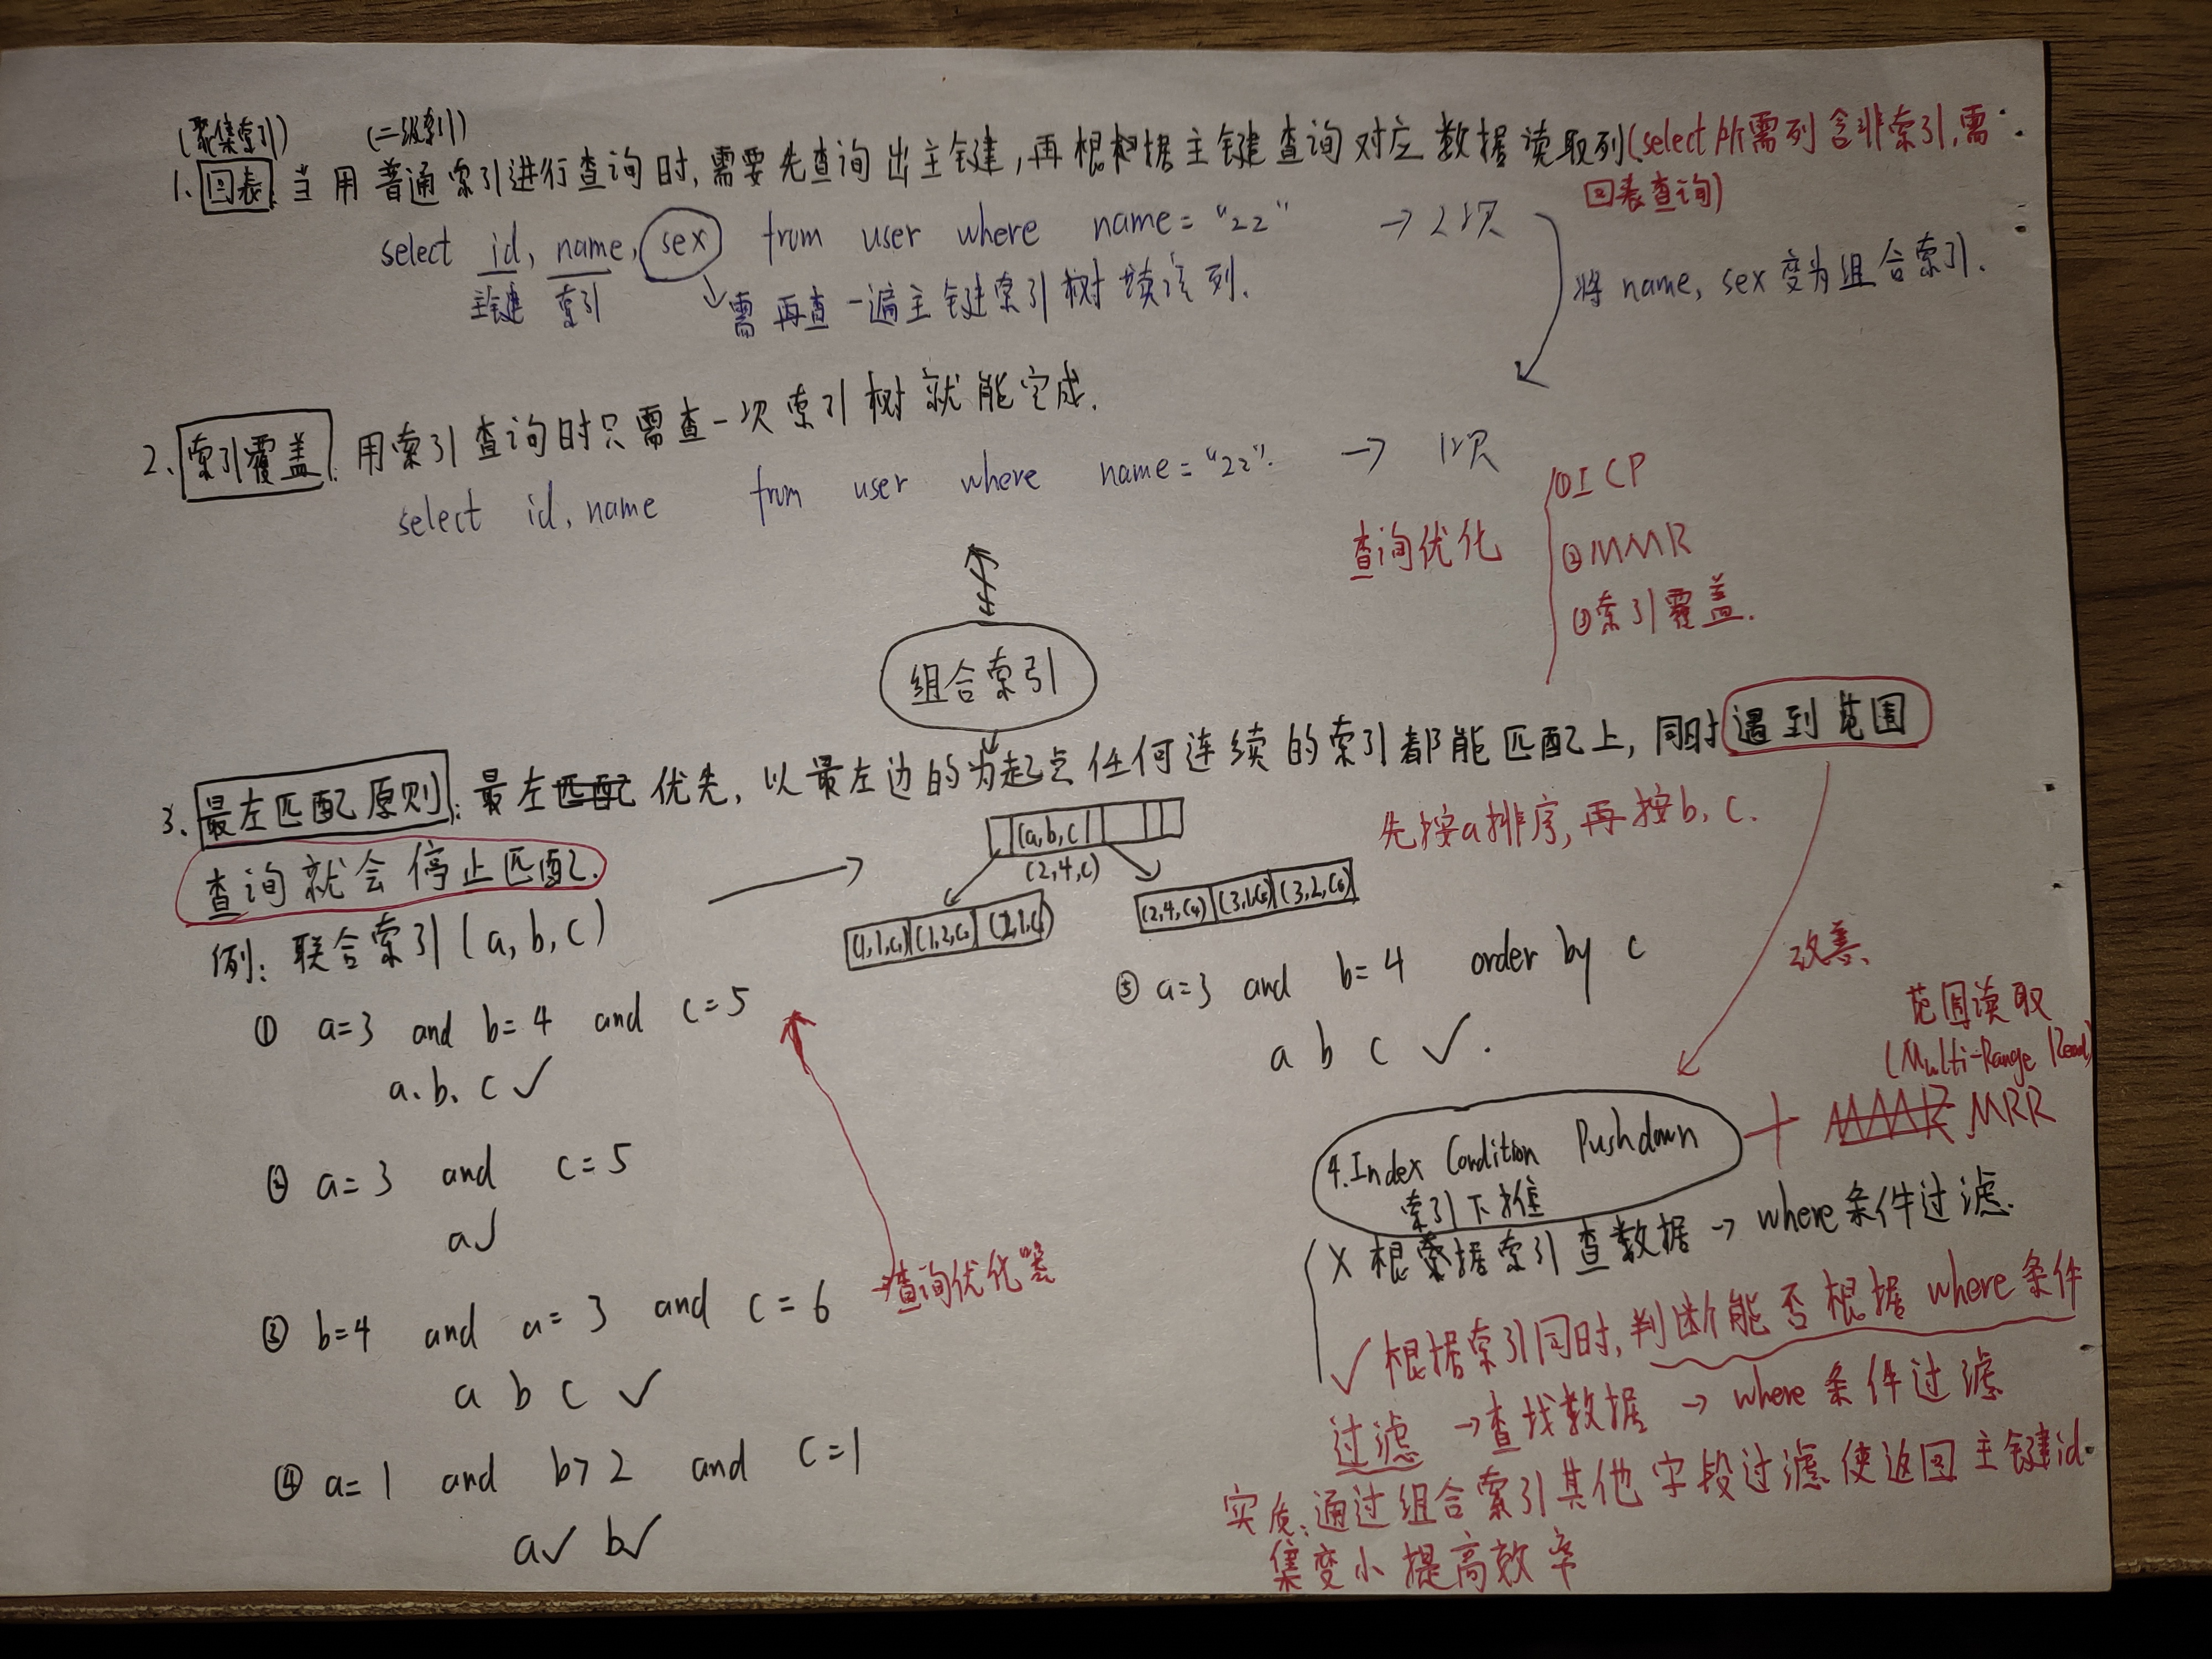 (聚集索引) (二级索引)
1. 回表: 当用普通索引进行查询时, 需要先查询出主键, 再根据主键查询对应数据读取列(select 所需列含非索引, 需
回表查询)
select id, name, sex from user where name = "zz" → 2次
主键 索引
↓需再查一遍主键索引树 读该列.
将 name, sex 变为组合索引.
2、索引覆盖: 用索引查询时只需查一次索引树就能完成.
select id, name from user where name = "zz". → 1次
查询优化
①ICP
②MMR
③索引覆盖.
组合索引
3、最左匹配原则: 最左优先, 以最左边的为起点任何连续的索引都能匹配上, 同时遇到范围
查询就会停止匹配.
先按a排序, 再按b, c.
(a, b, c)
(2, 4, c)
(1, 1, c₁) (1, 2, c₂)
(2, 4, c₄) (3, 1, c₅) (3, 2, c₆)
例: 联合索引 (a, b, c)
① a=3 and b=4 and c=5
a、b、c ✓
② a=3 and c=5
a✓
③ b=4 and a=3 and c=6
a b c ✓
→查询优化器
④ a=1 and b>2 and c=1
a✓ b✓
⑤ a=3 and b=4 order by c
a b c ✓.
改善
范围读取
(Multi-Range Read)
4. Index Condition Pushdown + MRR
索引下推
X 根据索引查数据 → where 条件过滤.
✓ 根据索引同时, 判断能否根据 where 条件
过滤 → 查找数据 → where 条件过滤
实质: 通过组合索引其他字段过滤 使返回主键id
集变小 提高效率